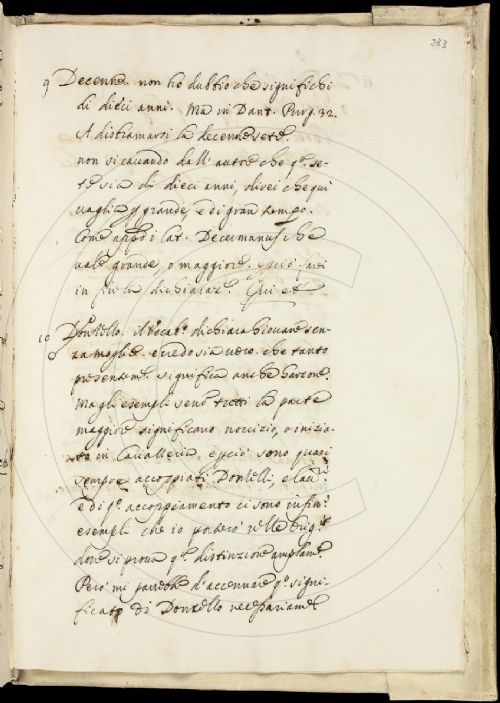 263
9 Decenne. non ho dubbio che significhi
di dieci anni. Ma in Dant. Purg. 32.
A disbramarsi la decenne sete.
non si cavando dall' autore che q.a se-
te sia di dieci anni, direi che qui
vaglia p grande, e di gran tempo.
Come app.o i Lat. Decumanus che
vale grande, o maggiore. e p ciò farei
in fin la dichiaraz.e Qui et
10 Donzello. Il Vocab.o dichiara Giovane sen-
za moglie. e credo sia vero. che tanto
presentem.e significa anche Garzone.
Ma gli esempli sono tratti la parte
maggiore significano novizio, o inizia-
to in Cavalleria, e p ciò sono quasi
sempre accoppiati Donzelli, e Cav.ri
e di q.o accoppiamento ci sono infin.i
esempli che io porterò nelle Orig.i
dove si prova q.a distinzione amplam.e
Però mi parrebbe d'accennare q.o signi-
ficato di Donzello necessariam.e